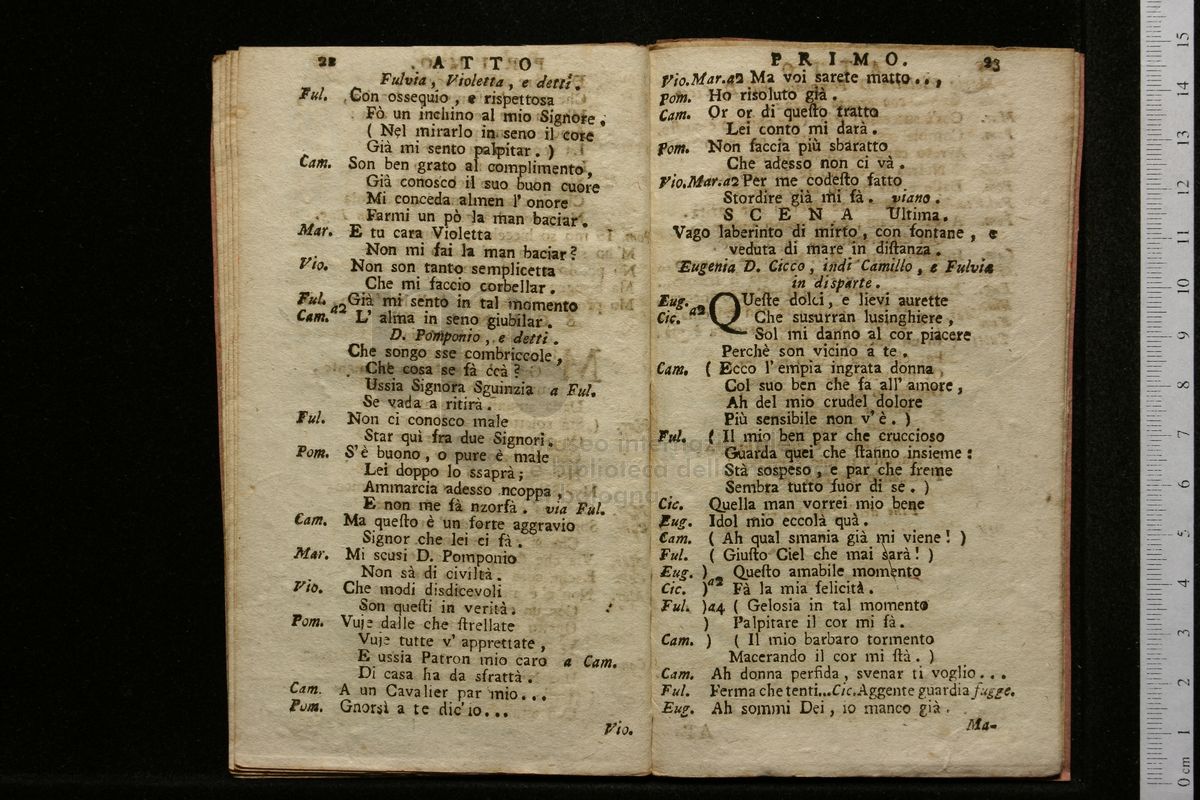 22 ATTO
Fulvia, Violetta, e detti.
Ful. Con ossequio, e rispettosa
Fò un inchino al mio Signore,
( Nel mirarlo in seno il core
Già mi sento palpitar. )
Cam. Son ben grato al complimento,
Già conosco il suo buon cuore
Mi conceda almen l' onore
Farmi un pò la man baciar.
Mar. E tu cara Violetta
Non mi fai la man baciar?
Vio. Non son tanto semplicetta
Che mi faccio corbellar.
Ful. a2 Già mi sento in tal momento
Cam. L' alma in seno giubilar.
D. Pomponio, e detti.
Che songo sse combriccole,
Che cosa se fà ccà?
Ussia Signora Sguinzia a Ful.
Se vada a ritirà.
Ful. Non ci conosco male
Star quì fra due Signori.
Pom. S'è buono, o pure è male
Lei doppo lo ssaprà;
Ammarcia adesso ncoppa,
E non me fà nzorfà. via Ful.
Cam. Ma questo è un forte aggravio
Signor che lei ci fà.
Mar. Mi scusi D. Pomponio
Non sà di civiltà.
Vio. Che modi disdicevoli
Son questi in verità.
Pom. Vuje dalle che strellate
Vuje tutte v' apprettate,
E ussia Patron mio caro a Cam.
Di casa ha da sfrattà.
Cam. A un Cavalier par mio...
Pom. Gnorsì a te dic'io...
Vio.
PRIMO. 23
Vio.Mar.a2 Ma voi sarete matto...,
Pom. Ho risoluto già.
Cam. Or or di questo tratto
Lei conto mi darà.
Pom. Non faccia più sbaratto
Che adesso non ci và.
Vio.Mar.a2 Per me codesto fatto
Stordire già mi fà. viano.
SCENA Ultima.
Vago laberinto di mirto, con fontane, e
veduta di mare in distanza.
Eugenia D. Cicco, indi Camillo, e Fulvia
in disparte.
Eug. a2 QUeste dolci, e lievi aurette
Cic. Che susurran lusinghiere,
Sol mi danno al cor piacere
Perchè son vicino a te.
Cam. ( Ecco l' empia ingrata donna
Col suo ben che fa all' amore,
Ah del mio crudel dolore
Più sensibile non v' è. )
Ful. ( Il mio ben par che cruccioso
Guarda quei che stanno insieme:
Stà sospeso, e par che freme
Sembra tutto fuor di se. )
Cic. Quella man vorrei mio bene
Eug. Idol mio eccolà quà.
Cam. ( Ah qual smania già mi viene! )
Ful. ( Giusto Ciel che mai sarà! )
Eug. ) a2 Questo amabile momento
Cic. ) Fà la mia felicità.
Ful. )a4 ( Gelosia in tal momento
) Palpitare il cor mi fà.
Cam. ) ( Il mio barbaro tormento
Macerando il cor mi stà. )
Cam. Ah donna perfida, svenar ti voglio...
Ful. Ferma che tenti...Cic.Aggente guardia fugge.
Eug. Ah sommi Dei, io manco già.
Ma-